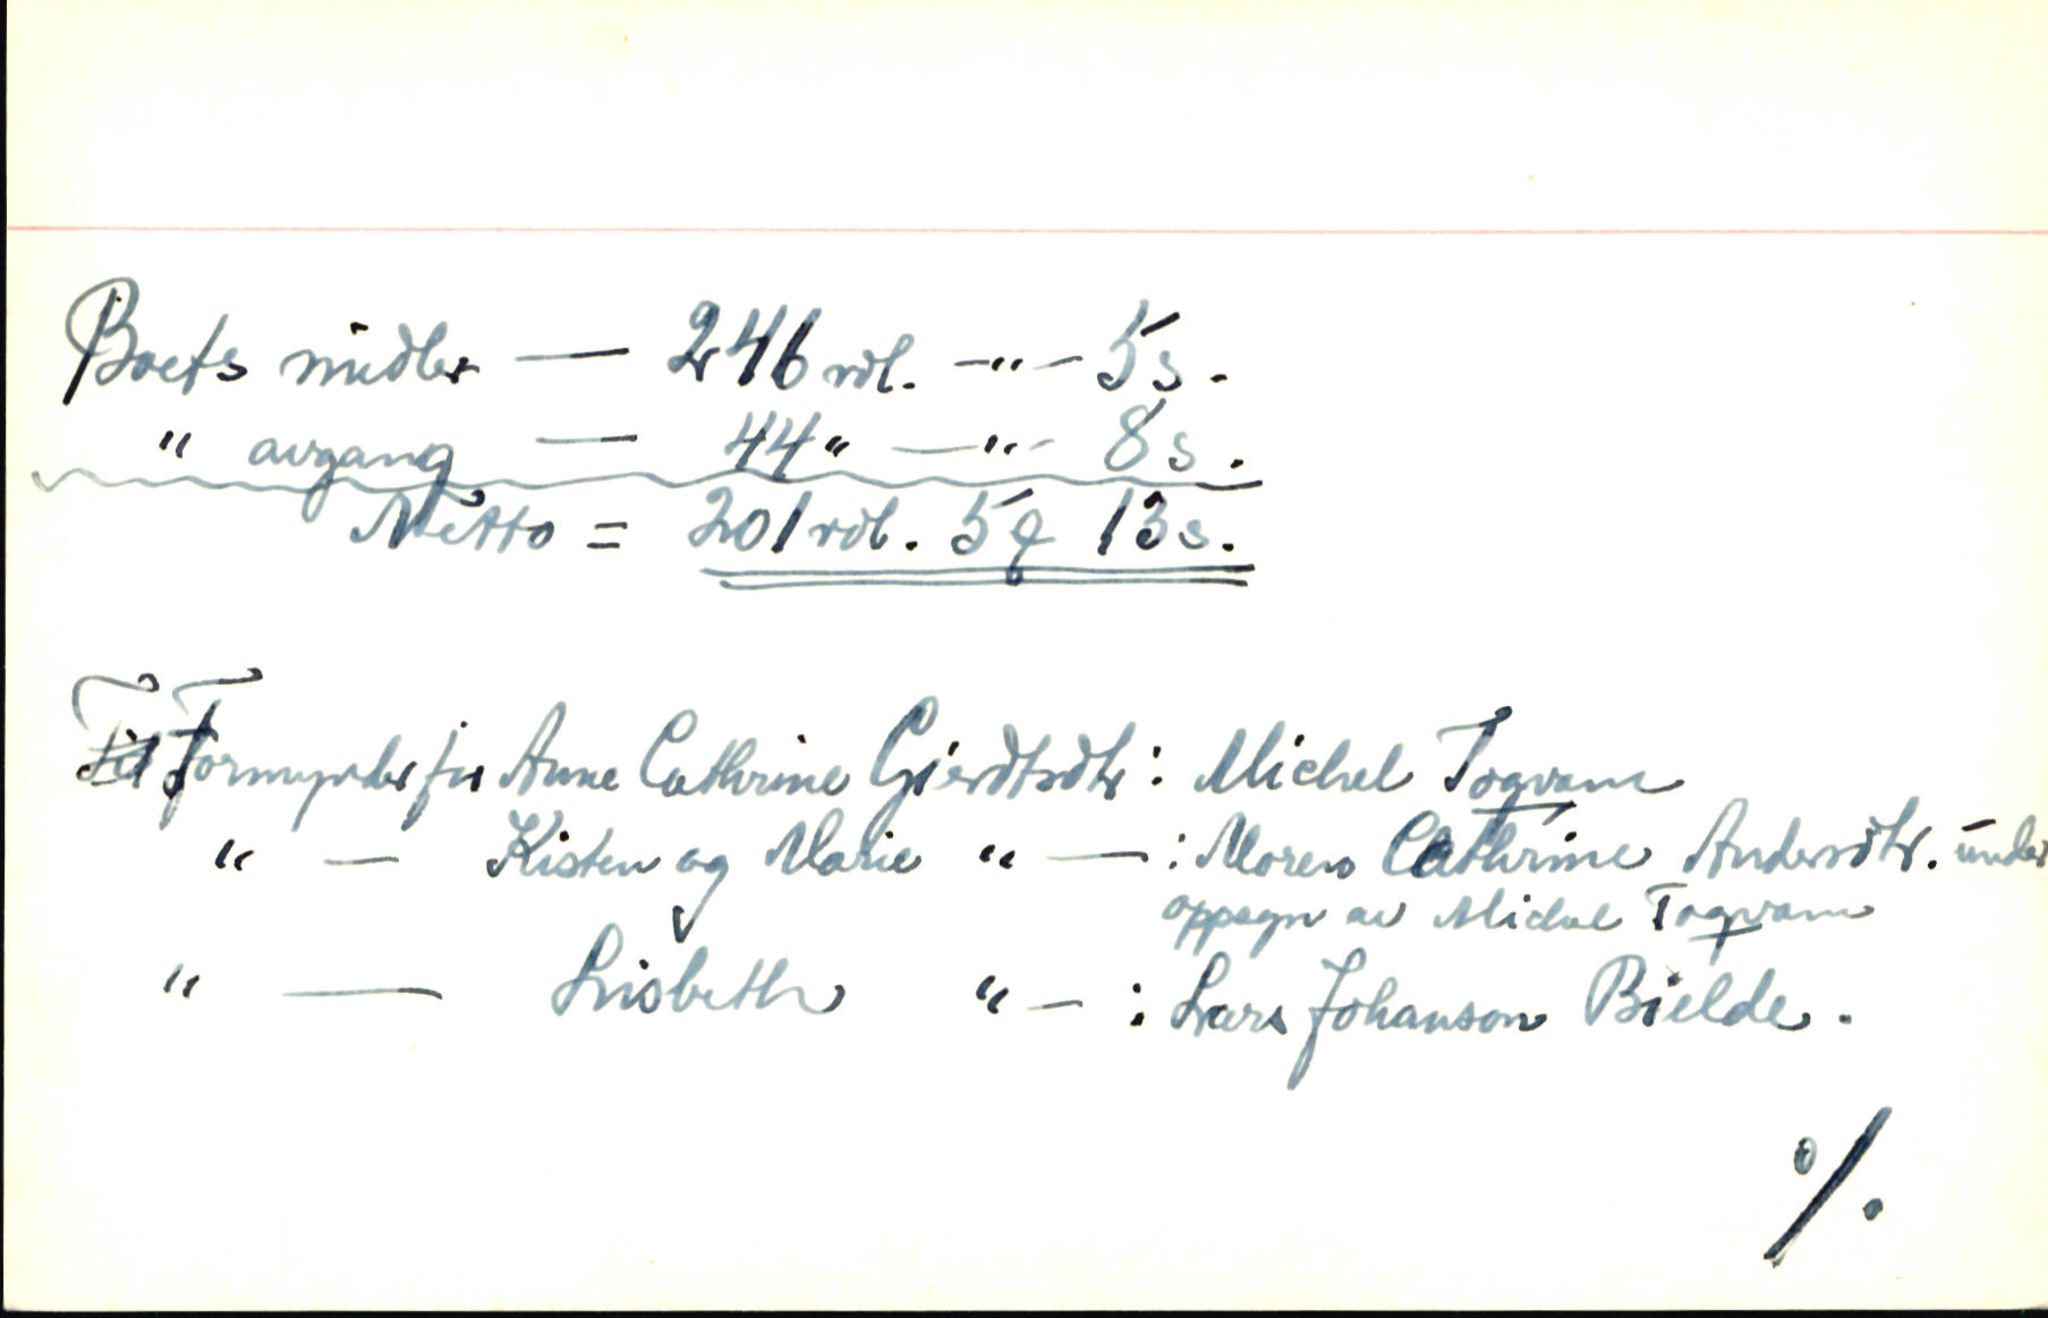 Boets midler — 246 rdl. -"- 5 s.
" avgang — 44 " -"- 8 s.
Netto = 201 rdl. 5 q 13 s.
Formynder for Anne Cathrine Gierdtsdtr: Michel Togvam
" — Kisten og Marie " — : Moren Cathrine Andersdtr. under
oppsyn av Michel Togvam
" — Lisbeth " - : Lars Johanson Bielde.
%